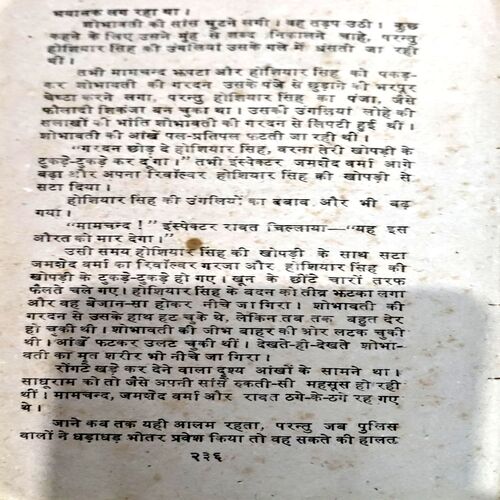 भयानक लग रहा था।
शोभावती की सांस घुटने लगी। वह तड़प उठी। कुछ
कहने के लिए उसने मुंह से शब्द निकालने चाहे, परन्तु
होशियार सिंह की उंगलियां उसके गले में धंसती जा रही
थीं।
तभी मामचन्द झपटा और होशियार सिंह को पकड़-
कर शोभावती की गरदन उसके पंजे से छुड़ाने की भरपूर
चेष्टा करने लगा, परन्तु होशियार सिंह का पंजा, जैसे
फौलादी शिकंजा बन चुका था। उसकी उंगलियां लोहे की
सलाखों की भांति शोभावती की गरदन से लिपटी हुई थीं।
शोभावती की आंखें पल-प्रतिपल फटती जा रही थीं।
"गरदन छोड़ दे होशियार सिंह, वरना तेरी खोपड़ी के
टुकड़े-टुकड़े कर दूंगा।" तभी इंस्पेक्टर जमशेद वर्मा आगे
बढ़ा और अपना रिवॉल्वर होशियार सिंह की खोपड़ी से
सटा दिया।
होशियार सिंह की उंगलियों का दबाव और भी बढ़
गया।
"मामचन्द !" इंस्पेक्टर रावत चिल्लाया—"यह इस
औरत को मार देगा।"
उसी समय होशियार सिंह की खोपड़ी के साथ सटा
जमशेद वर्मा का रिवॉल्वर गरजा और होशियार सिंह की
खोपड़ी के टुकड़े-टुकड़े हो गए। खून के छींटे चारों तरफ
फैलते चले गए। होशियार सिंह के बदन को तीव्र झटका लगा
और वह बेजान-सा होकर नीचे जा गिरा। शोभावती की
गरदन से उसके हाथ हट चुके थे, लेकिन तब तक बहुत देर
हो चुकी थी। शोभावती की जीभ बाहर की ओर लटक चुकी
थी। आंखें फटकर उलट चुकी थीं। देखते-ही-देखते शोभा-
वती का मृत शरीर भी नीचे जा गिरा।
रोंगटे खड़े कर देने वाला दृश्य आंखों के सामने था।
साधूराम को तो जैसे अपनी सांसें रुकती-सी महसूस हो रही
थीं। मामचन्द, जमशेद वर्मा और रावत ठगे-के-ठगे रह गए
थे।
जाने कब तक यही आलम रहता, परन्तु जब पुलिस
वालों ने धड़ाधड़ भीतर प्रवेश किया तो वह सकते की हालत
२३६